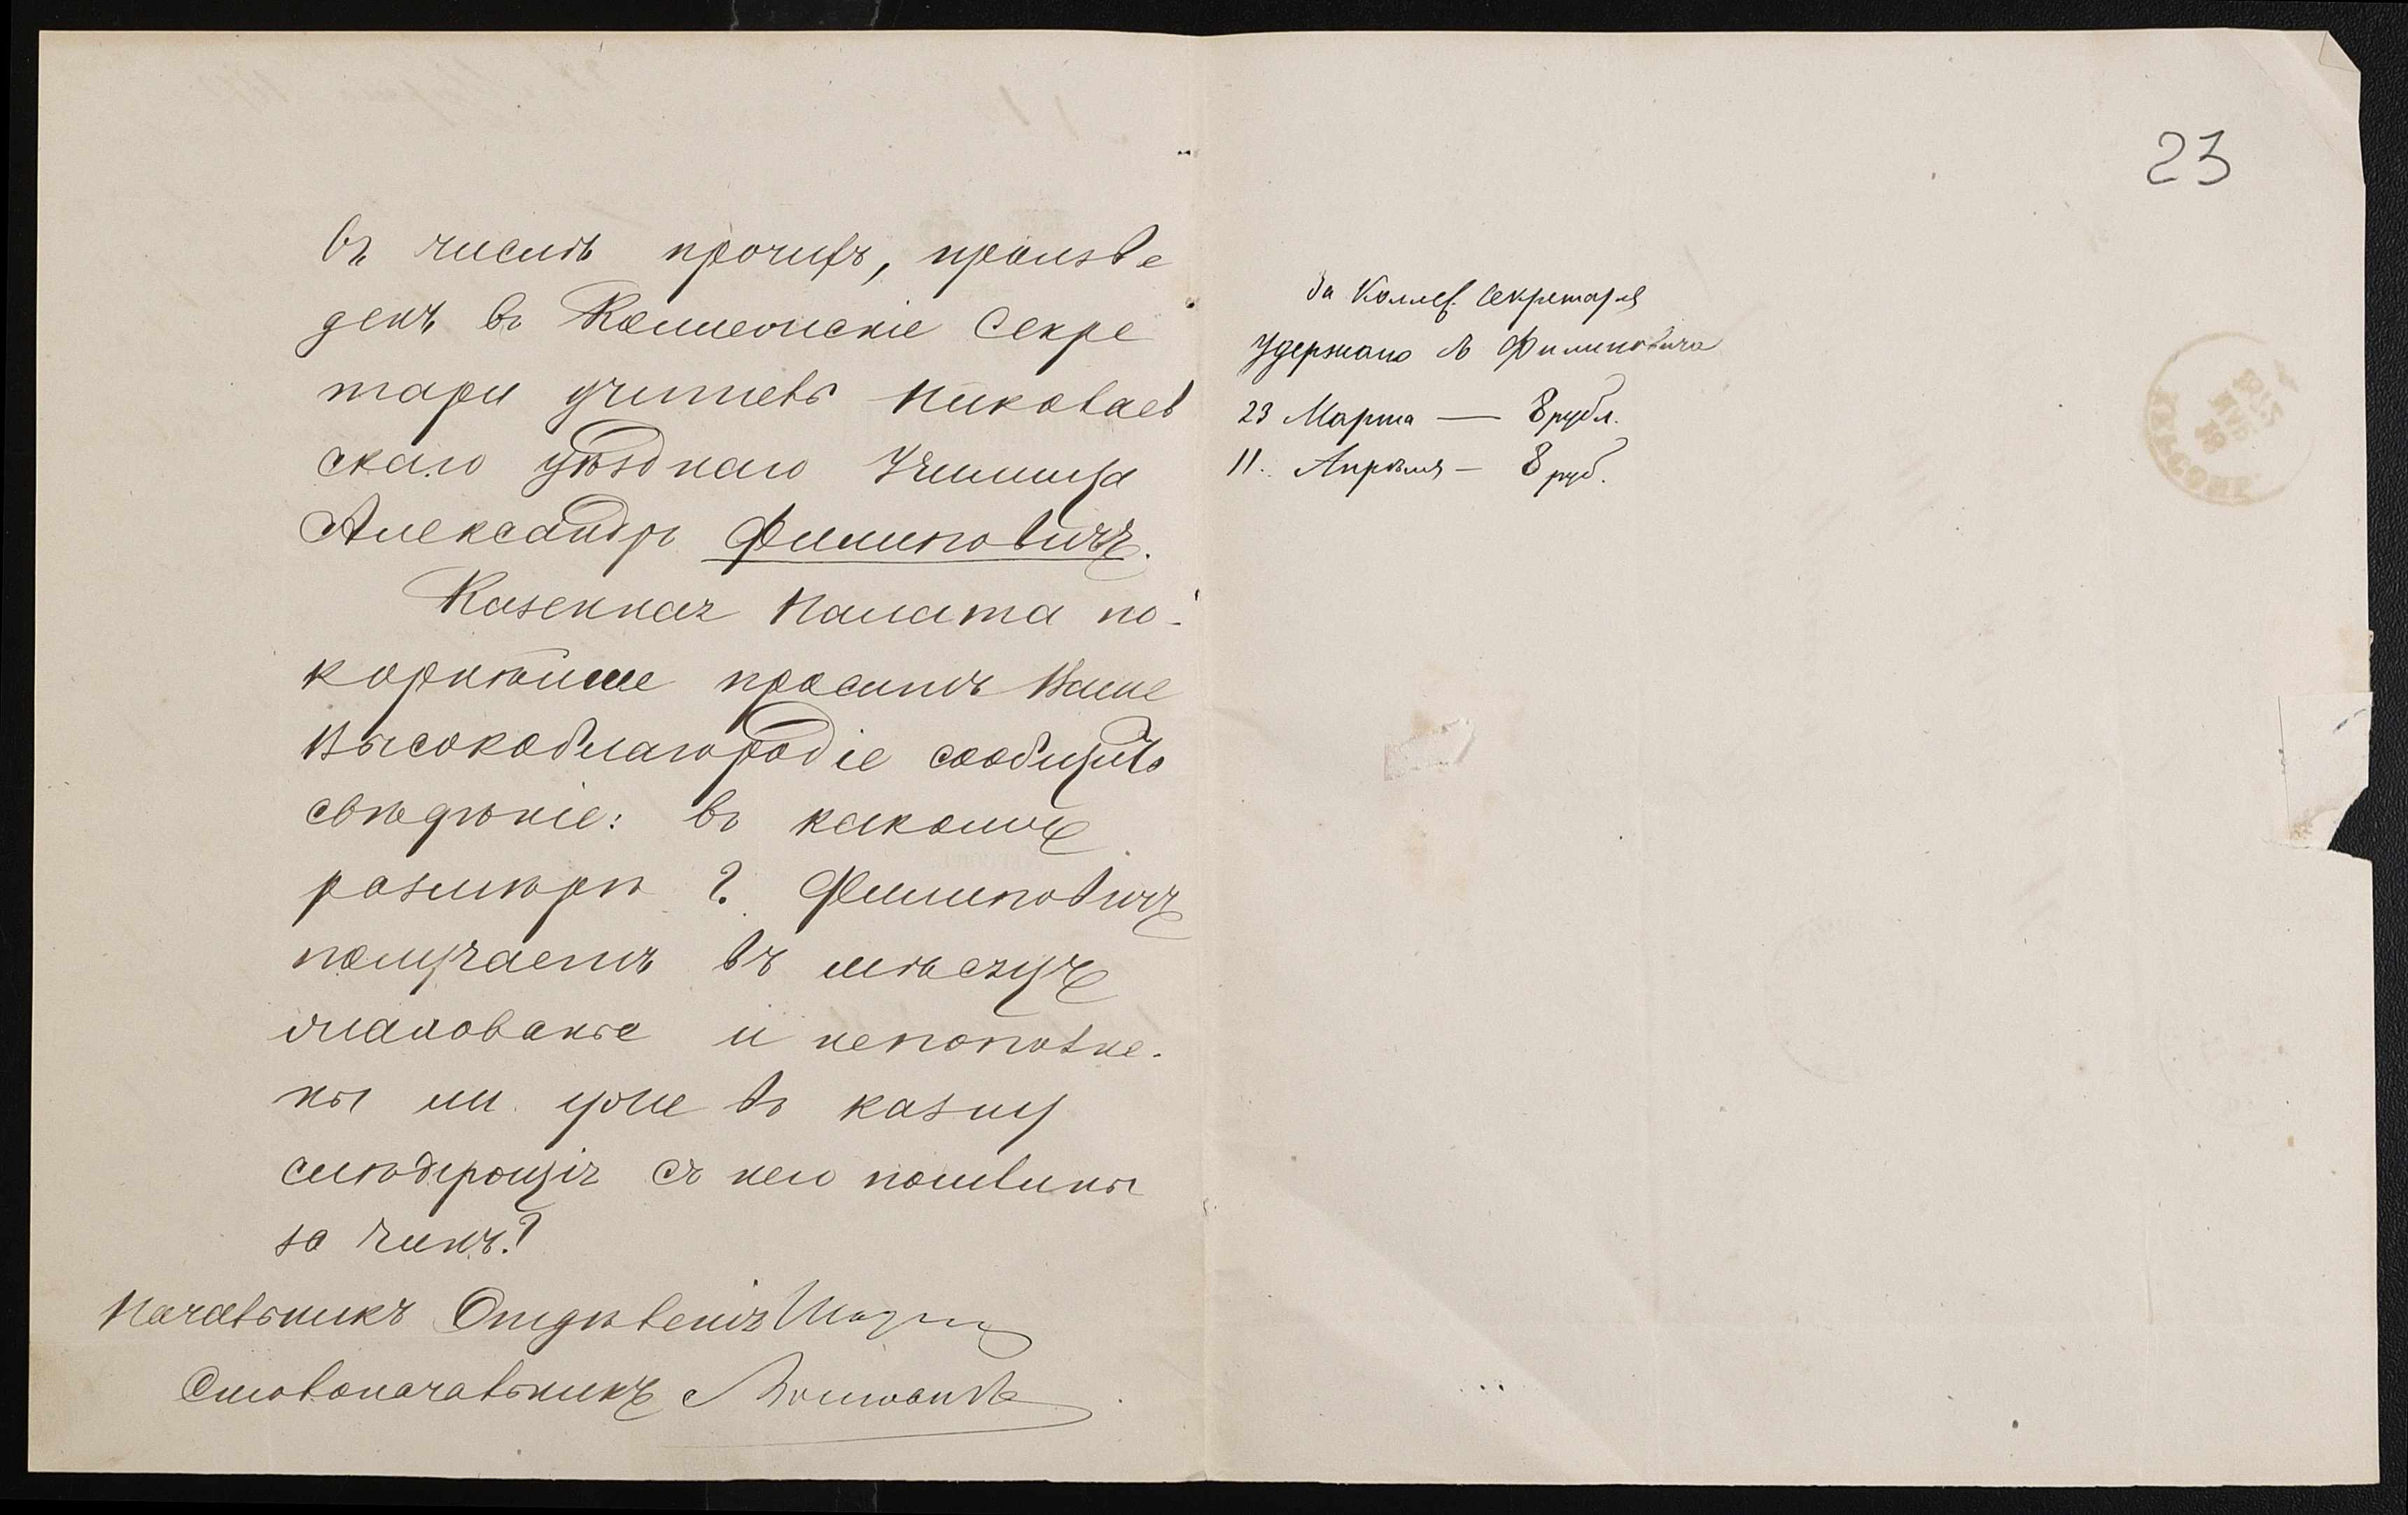 въ числѣ прочихъ, произве
денъ въ Коллежскіе Секре
тари учитель Николаев
скаго уѣзднаго Училища
Александръ Филиповичъ.
Казенная Палата по-
корнѣйше проситъ Ваше
Высокоблагородіе сообщить
свѣдѣніе: въ какомъ
размѣрѣ Г. Филиповичъ
получаетъ въ мѣсяцъ
жалованье и непополне-
ны ли уже въ казну
слѣдующія съ него пошлины
за чинъ?
Начальникъ Отдѣленія
Столоначальникъ
23
За Коллеж. Секретаря
Удержано съ Филиповича
23 Марта — 8 рубл.
11. Апрѣля — 8 руб.
ХЕРСОНЪ